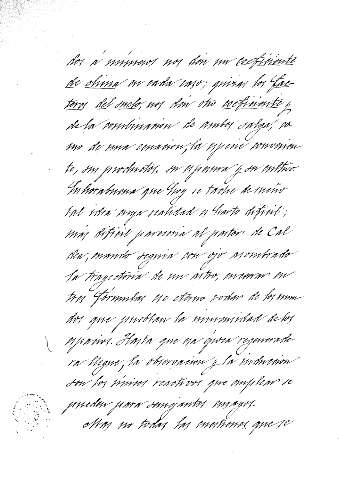 dos á números nos dén un coeficiente
de clima en cada caso; quizás los fac-
tores del suelo, nos den otro coeficiente y
de la combinacion de ambos salga, co
mo de una ecuacion, la especie convenien-
te, sus productos, su espesura y su cultivo
Enhorabuena que hoy se tache de necio
tal idea cuya realidad es harto dificil;
más dificil pareceria al pastor de Cal
dea, cuando seguia con ojo asombrado
la trayectoria de un astro, encerrar en
tres fórmulas ese eterno rodar de los mun
dos que pueblan la inmensidad de los
espacios. Hasta que esa época regenerado
ra llegue, la observacion y la induccion
son los únicos reactivos que emplear se
pueden para semejantes ensayos.
Mas no todas las cuestiones que se